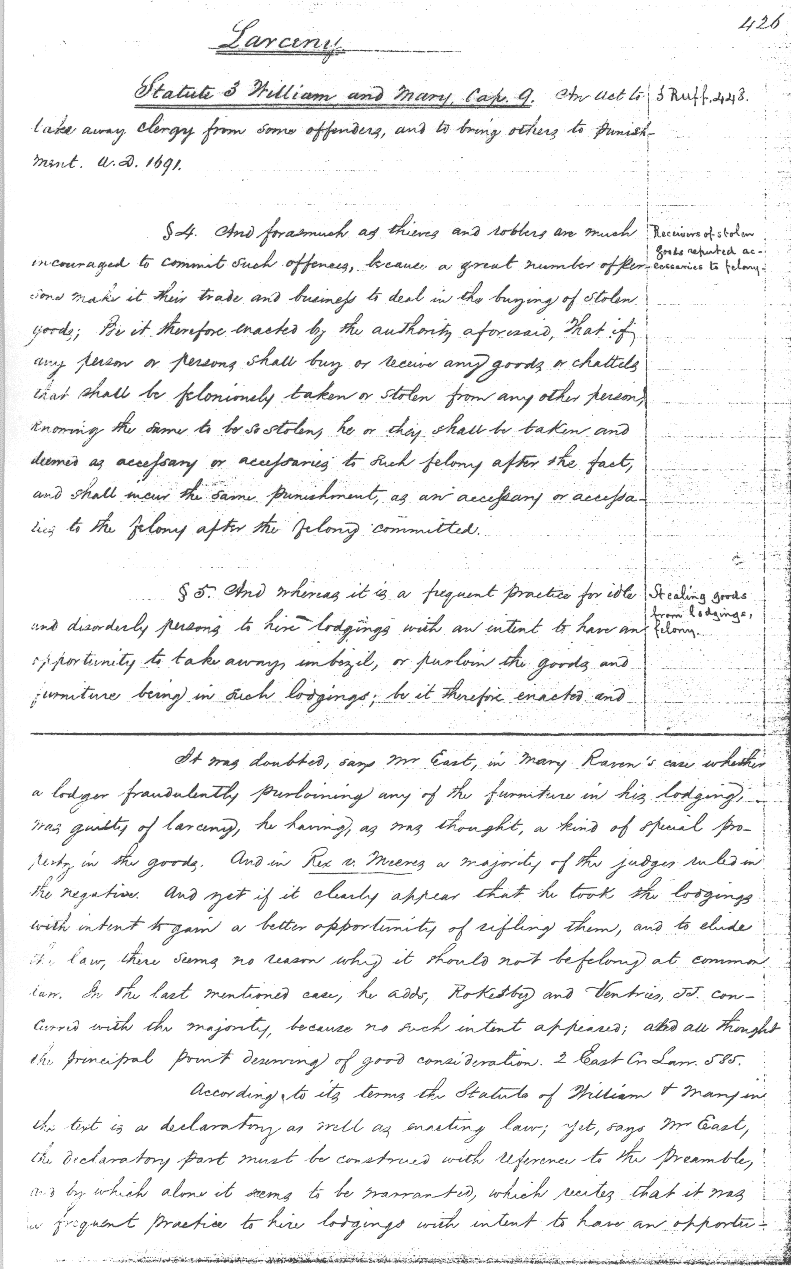 426
Larceny.
Statute 3 William and Mary, Cap. 9. An Act to
take away clergy from some offenders, and to bring others to punish-
ment. A.D. 1691.
3 Ruff. 448.
§4. And forasmuch as thieves and robbers are much
incouraged to commit such offences, because a great number of per-
sons make it their trade and business to deal in the buying of stolen
goods; Be it therefore enacted by the authority aforesaid, That if
any person or persons shall buy or receive any goods or chattels
that shall be feloniously taken or stolen from any other person,
knowing the same to be so stolen, he or they shall be taken and
deemed as accessary or accessaries to such felony after the fact,
and shall incur the same punishment, as an accessary or accessa-
ries to the felony after the felony committed.
Receivers of stolen
goods reputed ac-
cessaries to felony.
§5. And whereas it is a frequent practice for idle
and disorderly persons to hire lodgings with an intent to have an
opportunity to take away, imbezil, or purloin the goods and
furniture being in such lodgings; be it therefore enacted and
Stealing goods
from lodgings,
felony.
It was doubted, says Mr East, in Mary Raven's case whether
a lodger fraudulently purloining any of the furniture in his lodging,
was guilty of larceny, he having, as was thought, a kind of special pro-
perty in the goods. And in Rex v. Meeres a majority of the judges ruled in
the negative. And yet if it clearly appear that he took the lodgings
with intent to gain a better opportunity of rifling them, and to elude
the law, there seems no reason why it should not be felony at common
law. In the last mentioned case, he adds, Rokesby and Ventries, JJ. con-
curred with the majority, because no such intent appeared; and all thought
the principal point deserving of good consideration. 2 East Cr. Law. 585.
According to its terms the Statute of William & Mary in
the text is a declaratory as well as enacting law; yet, says Mr East,
the declaratory part must be construed with reference to the preamble,
and by which alone it seems to be warranted, which recites that it was
a frequent practice to hire lodgings with intent to have an opportu-